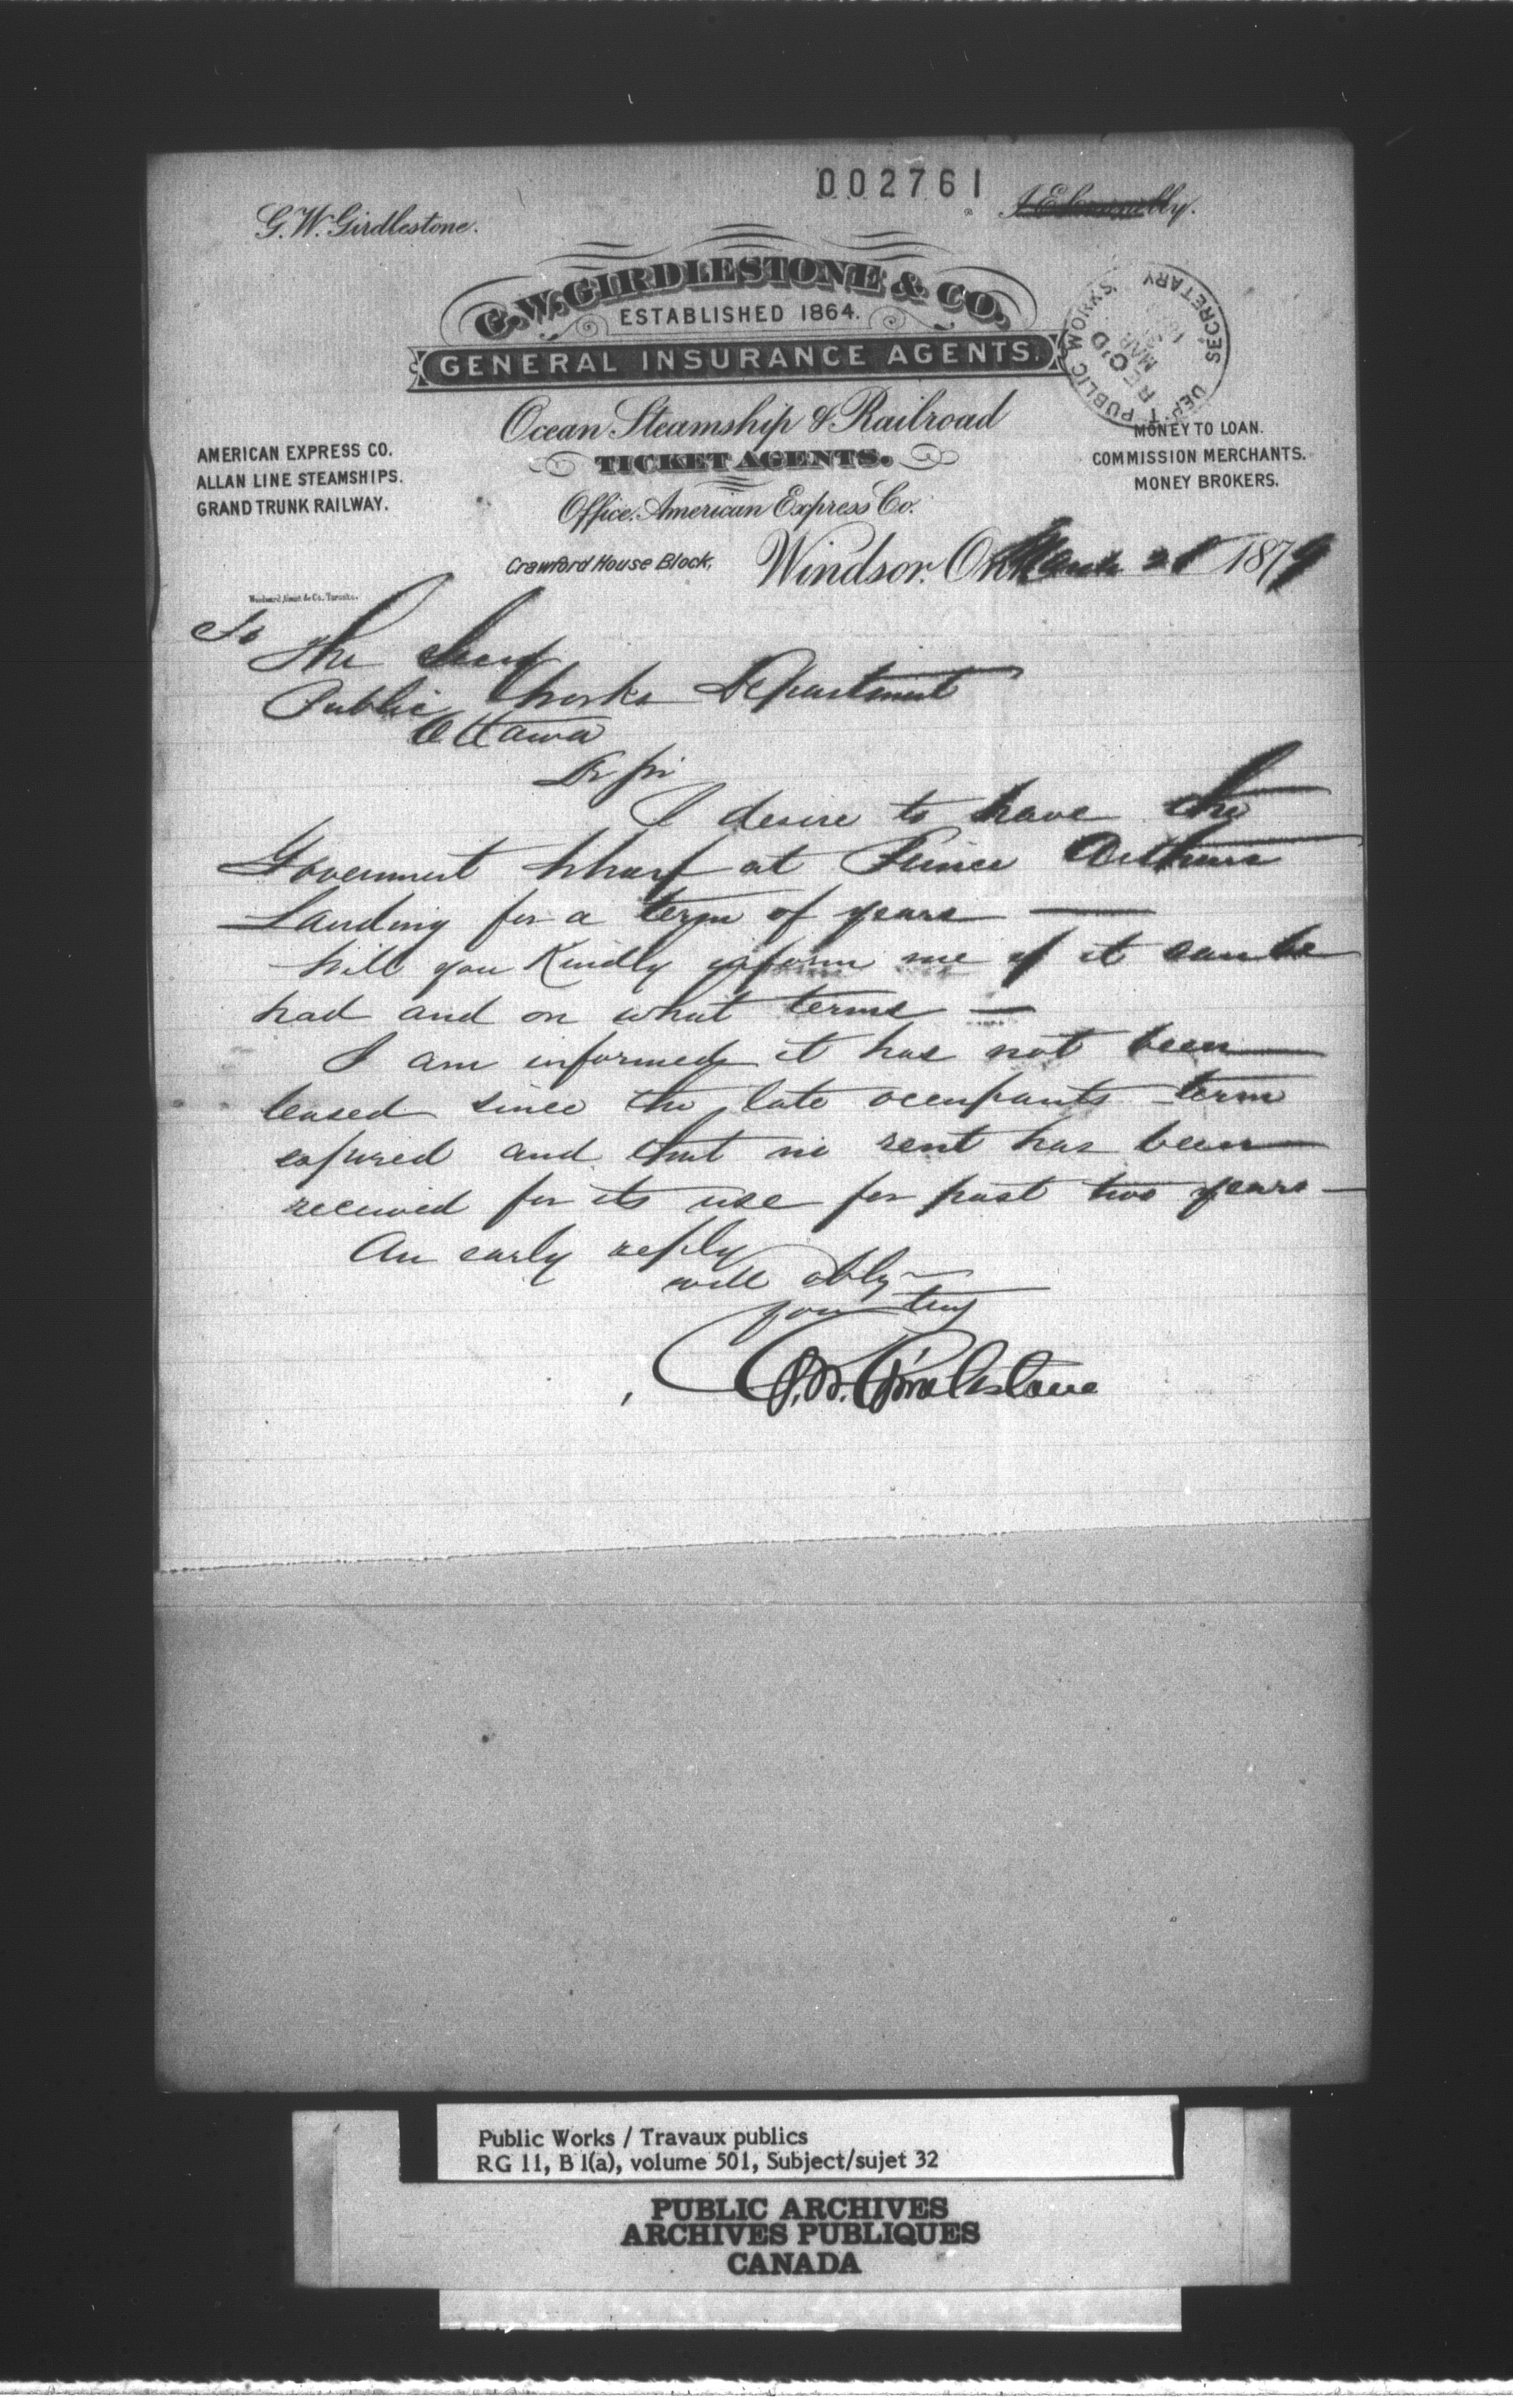 002761
G. W. Girdlestone.
G. W. GIRDLESTONE & CO.
ESTABLISHED 1864.
GENERAL INSURANCE AGENTS.
PUBLIC WORKS DEP'T SECRETARY
REC'D
MAR
Ocean Steamship & Railroad
TICKET AGENTS.
AMERICAN EXPRESS CO.
ALLAN LINE STEAMSHIPS.
GRAND TRUNK RAILWAY.
MONEY TO LOAN.
COMMISSION MERCHANTS.
MONEY BROKERS.
Office, American Express Co.
Crawford House Block,
Windsor, Ont March 28 1879
To
The Secy
Public Works Department
Ottawa
Dr Sir
I desire to have the
Government Wharf at Prince Arthurs
Landing for a term of years —
Will you Kindly inform me if it can be
had and on what terms —
I am informed it has not been
leased since the late occupants term
expired and that no rent has been
received for its use for past two years —
An early reply
will oblg
Your truly
G. W. Girdlestone
Public Works / Travaux publics
RG 11, B 1(a), volume 501, Subject/sujet 32
PUBLIC ARCHIVES
ARCHIVES PUBLIQUES
CANADA